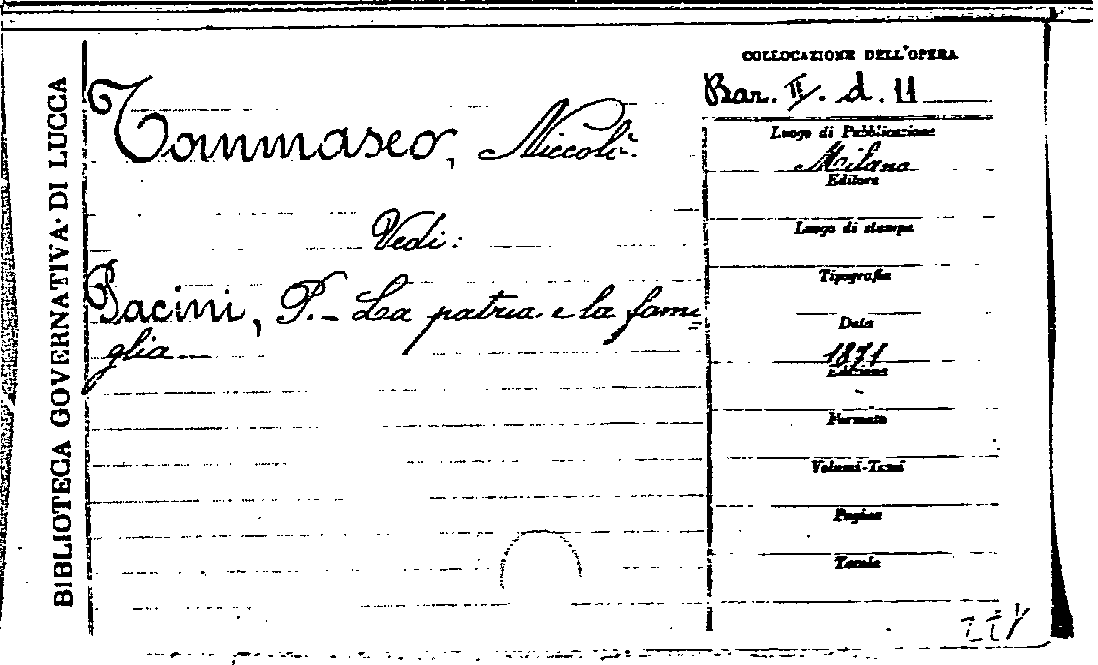 BIBLIOTECA GOVERNATIVA DI LUCCA
Tommaseo, Niccolò.
Vedi:
Pacini, P. - La patria e la fami=
glia
COLLOCAZIONE DELL'OPERA
Bar. II. d. 11
Luogo di Pubblicazione
Milano
Editore
Luogo di stampa
Tipografia
Data
1871
Edizione
Formato
Volumi-Tomi
Pagine
Tavole